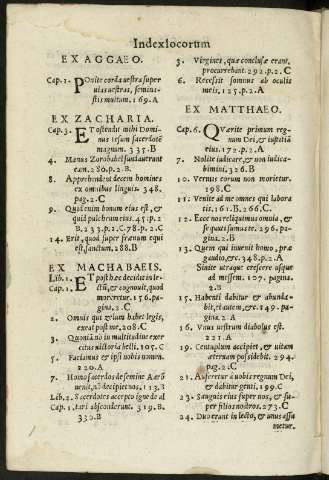 Index locorum
EX AGGAEO.
Cap. 1. POnite corda uestra super
uias uestras, seminastis multum. 169.A
EX ZACHARIA.
Cap. 3. ET ostendit mihi Dominus
iesum sacerdotē
magnum. 335.B
4. Manus Zorobabel fundauerunt
eam. 286.p.2.B
8. Apprehendent decem homines
ex omnibus linguis. 348.
pag.2.C
9. Quid enim bonum eius est, &
quid pulchrum eius. 45.p.2
B.233.p.1.C.78.p.2.C
14. Erit, quod super frænum equi
est, sanctum. 288.B
EX MACHABAEIS.
Lib. 1. ET post hæc decidit in lectū,
Cap. 1. & cognouit, quod
moreretur. 156.pagina.2.C
2. Omnis qui zelum habet legis,
exeat post me. 208.C
3. Quoniā no in multitudine exercitus
uictoria belli. 105.C
5. Faciamus & ipsi nobis nomen.
220.A
7. Homo sacerdos de semine Aarō
uenit, nō decipiet nos. 113.B
Lib. 2. Sacerdotes accepto igne de al
Cap. 1. tari absconderunt. 319.B.
330.B
3. Virgines, quæ conclusæ erant,
procurrebant. 292.p.2.C
6. Recessit somnus ab oculis
meis. 125.p.2.A
EX MATTHAEO.
Cap. 6. QVærite primum regnum
Dei, & iustitiā
eius. 172.p.2.A
7. Nolite iudicare, & non iudicabimini.
326.B
10. Vermis eorum non morietur.
198.C
11. Venite ad me omnes qui laboratis.
161.B.266.C
12. Ecce nos reliquimus omnia, &
secuti sumus te. 296.pagina.2.B
13. Quem qui inuenit homo, præ
gaudio, &c. 348.p.2.A
Sinite utraque crescere usque
ad messem. 107. pagina.
2.B
15. Habenti dabitur & abundabit,
ei autem, &c. 149.p.2.A
16. Vnus uestrum diabolus est.
221.A
19. Centuplum accipiet, & uitam
æternam possidebit. 294.
pag.2.C
21. Auferetur à uobis regnum Dei,
& dabitur genti. 199.C
23. Sanguis eius super nos, & super
filios nostros. 273.C
24. Duo erunt in lecto, & unus assumetur.